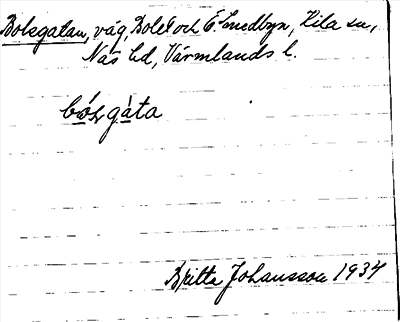 Bolsgatan, väg, Bolet och Ö. Smedbyn, Kila sn,
Näs hd, Värmlands l.
bó̱ḷsgáta
Britta Johansson 1934